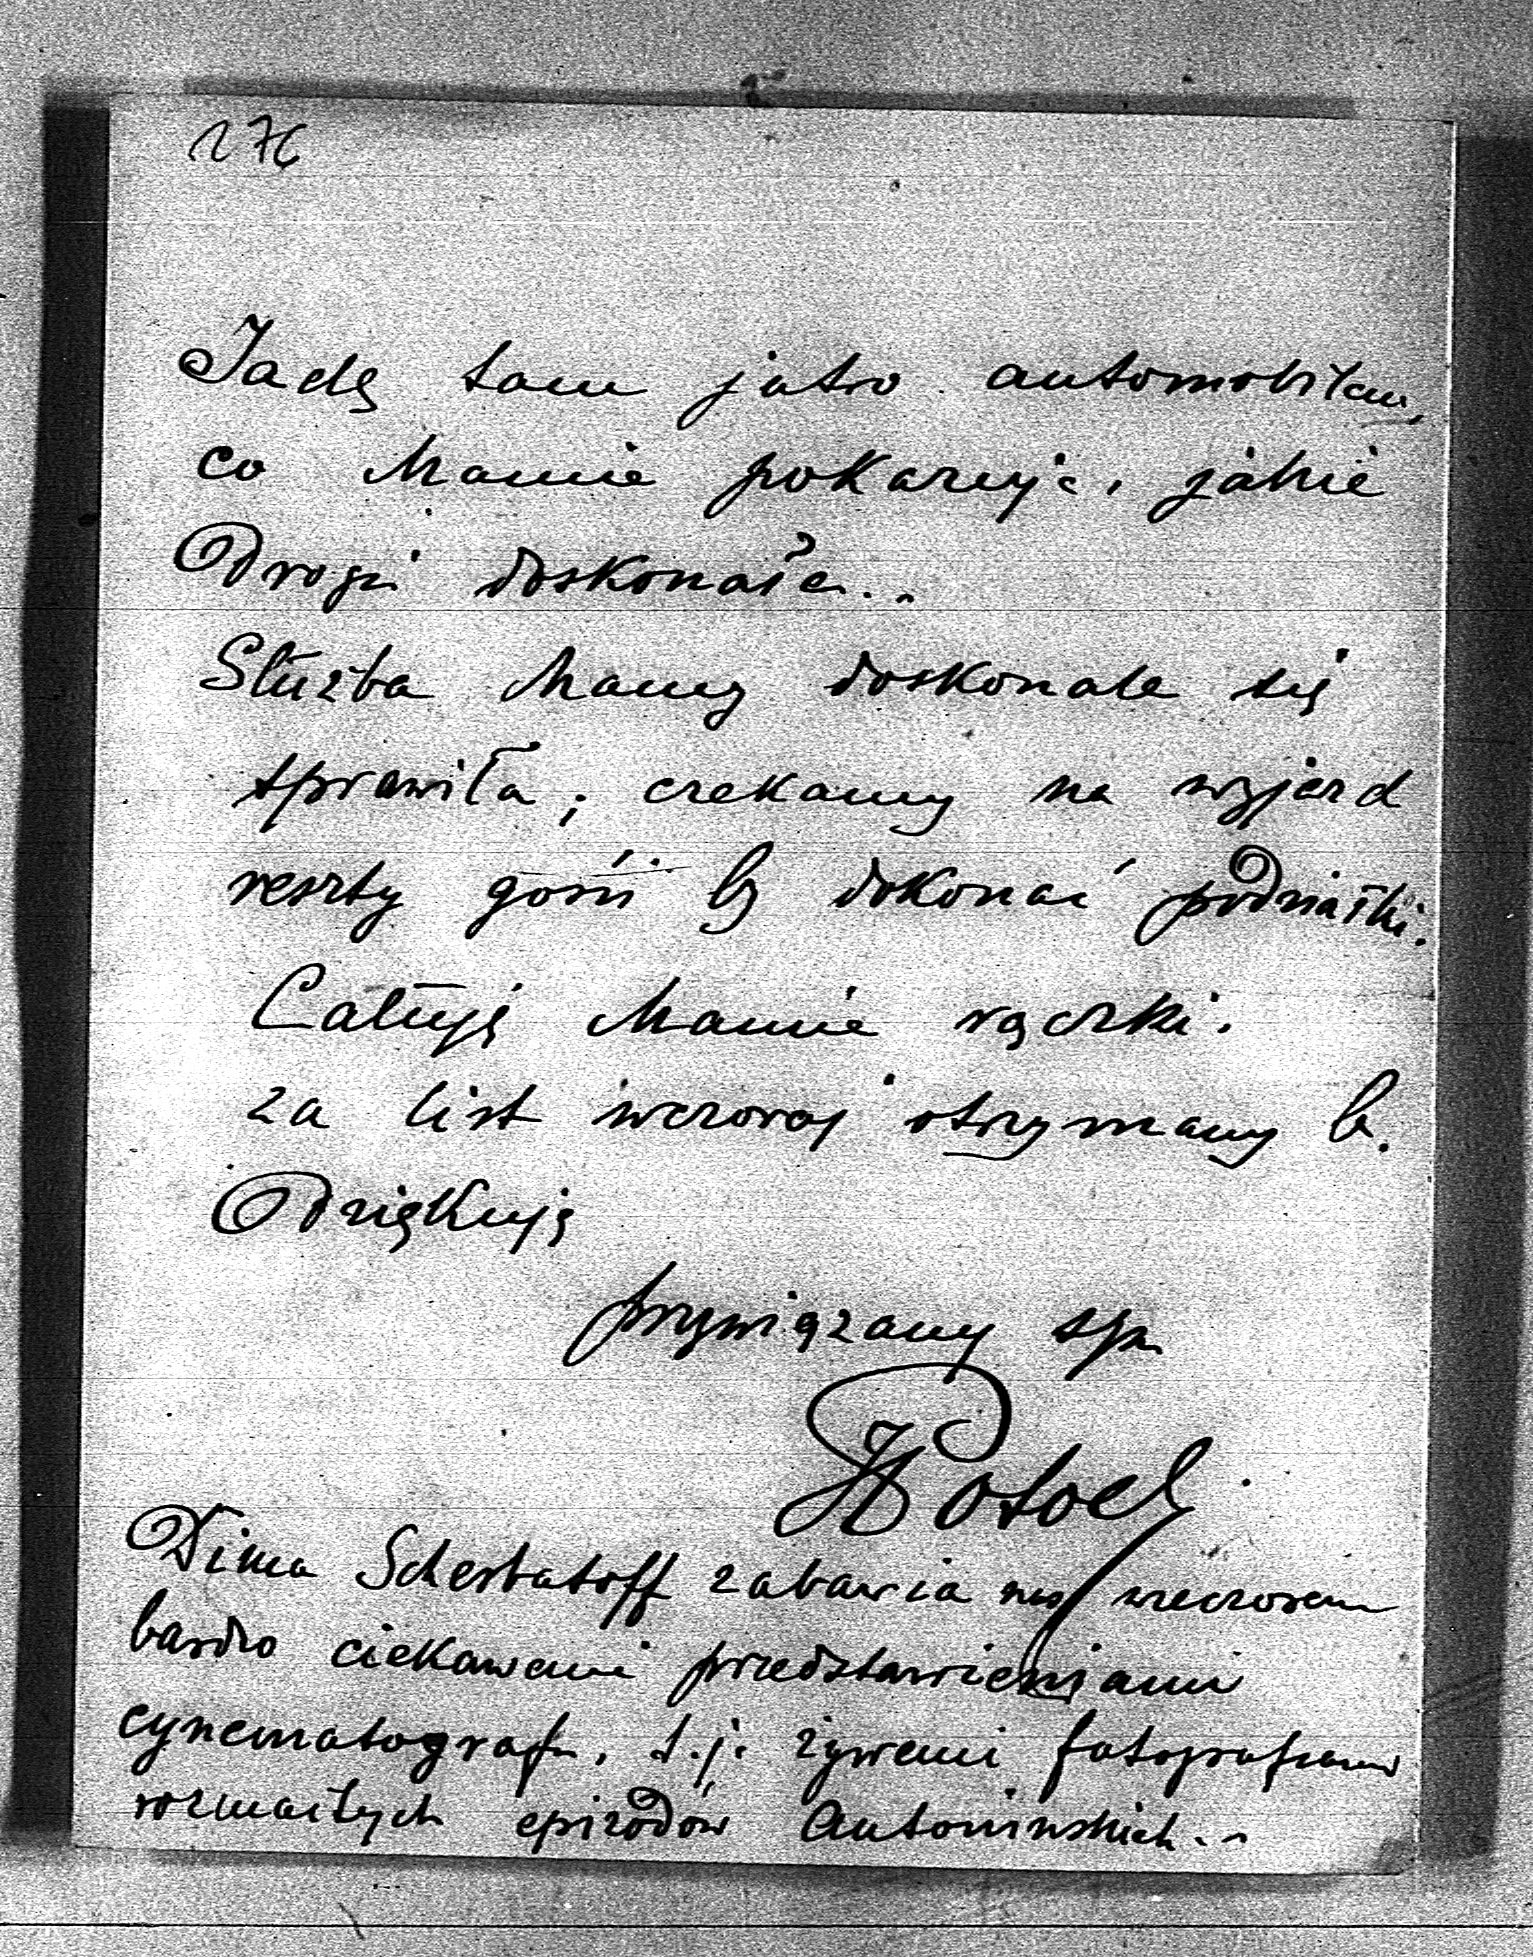 276
Jadę tam jutro automobilem,
co Mamie pokazuje, jakie
Drogi doskonałe..
Służba Mamy doskonale się
sprawiła; czekamy na wyjazd
reszty gości by dokonać podziałki.
Całuję Mamie rączki.
za list wczoraj otrzymany b.
Dziękuję
przywiązany syn
JPotocki
Dima Scherbatoff zabawia nas wieczorem
bardzo ciekawemi przedstawieniami
cynematografu, t.j. żywemi fotografiami
rozmaitych epizodów Antonińskich..